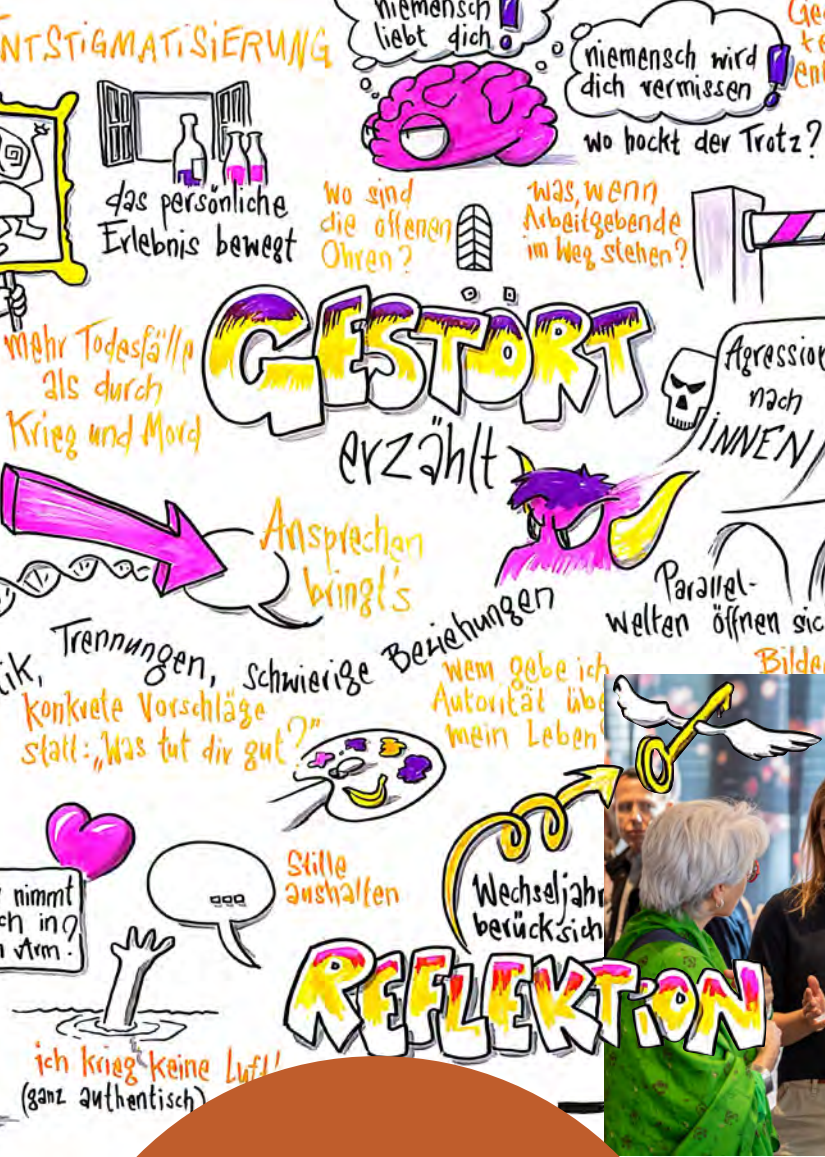 NTSTiGMATiSiERUNG
niemensch
liebt dich!
niemensch wird
dich vermissen!
wo hockt der Trotz?
das persönliche
Erlebnis bewegt
wo sind
die offenen
Ohren?
was, wenn
Arbeitgebende
im Weg stehen?
GESTÖRT
erzählt
mehr Todesfälle
als durch
Krieg und Mord
Agression
nach
iNNEN
Ansprechen
bringt's
Parallel-
welten öffnen sic
Trennungen, schwierige Beziehungen
konkrete Vorschläge
statt: „Was tut dir gut?"
wem gebe ich
Autorität übe
mein Leben
Bilde
nimmt
ch in
Arm?
Stille
aushalten
Wechseljahr
berücksich
REFLEKTiON
ich krieg keine Luft!
(ganz authentisch)